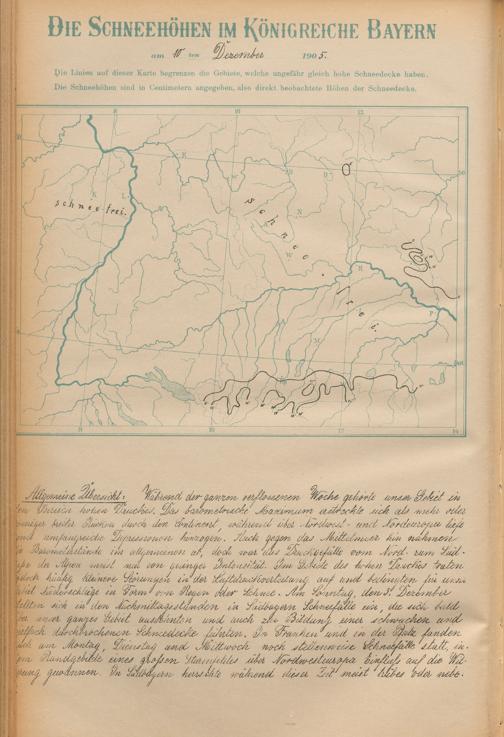 DIE SCHNEEHÖHEN IM KÖNIGREICHE BAYERN
am 10ten Dezember 1905.
Die Linien auf dieser Karte begrenzen die Gebiete, welche ungefähr gleich hohe Schneedecke haben.
Die Schneehöhen sind in Centimetern angegeben, also direkt beobachtete Höhen der Schneedecke.
schnee-frei.
schnee-frei.
Allgemeine Übersicht: Während der ganzen verflossenen Woche gehörte unser Gebiet in
Bereich hohen Druckes. Das barometrische Maximum erstreckte sich als mehr oder
weniger breiter Rücken durch den Continent, während über Nordwest- und Nordeuropa tiefe
und umfangreiche Depressionen hinzogen. Auch gegen das Mittelmeer hin nahmen
Barometerstände im allgemeinen ab, doch war das Druckgefälle vom Nord- zum Süd-
der Alpen meist nur von geringer Intensität. Im Gebiete des hohen Druckes traten
jedoch häufig kleinere Störungen in der Luftdruckverteilung auf und bedingten für unser
Niederschläge in Form von Regen oder Schnee. Am Sonntag, den 3. Dezember
stellten sich in den Nachmittagsstunden in Südbayern Schneefälle ein, die sich bald
unser ganzes Gebiet ausbreiteten und auch zur Bildung einer schwachen und
durchbrochenen Schneedecke führten. In Franken und in der Pfalz fanden
am Montag, Dienstag und Mittwoch noch stellenweise Schneefälle statt, in-
dem Randgebilde eines großen über Nordwesteuropa Einfluß auf die Wit-
terung gewannen. In Südbayern herrschte während dieser Zeit meist trübes oder nebe-